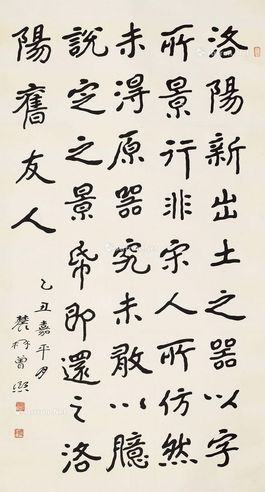 洛陽新出土之器以字
所景行非宋人所仿然
未得原器究未敢以臆
說定之景帋即還之洛
陽舊友人
乙丑嘉平月
農髯曾熙